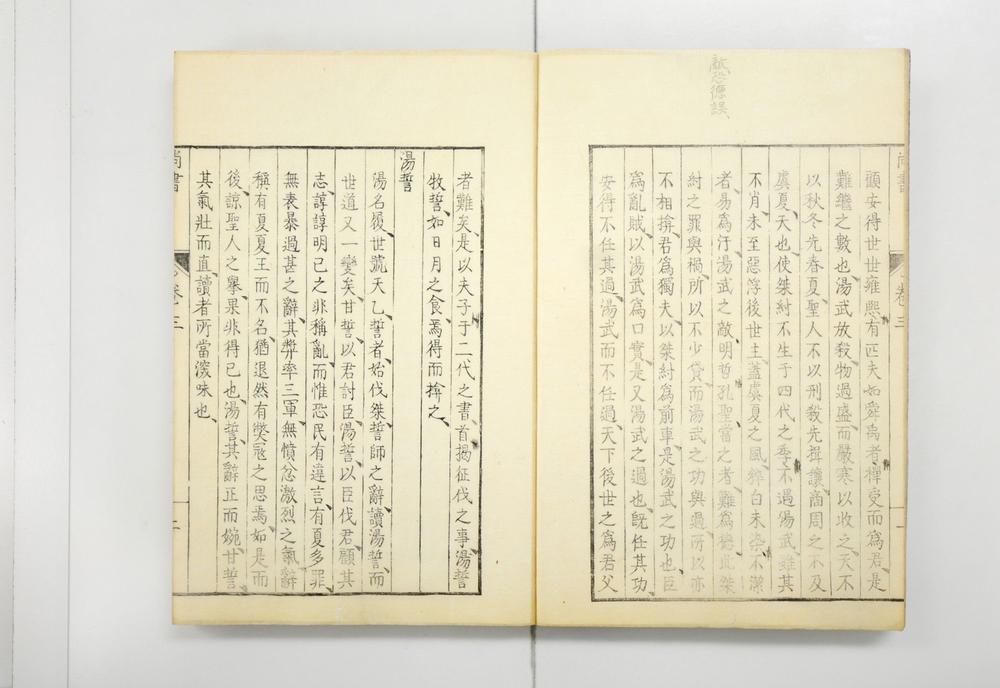 敵恐德誤
尚書
卷三
一
顧安得世世雍熙有匹夫如舜禹者襌受而爲君是
難繼之數也湯武放殺物過盛而嚴寒以收之天不
以秋冬先春夏聖人不以刑殺先揖讓商周之不及
虞夏天也使桀紂不生于四代之季不遇湯武雖其
不肖未至惡浮後世主蓋虞夏之風粹白未染不潔
者易爲汙湯武之敵明哲孔聖當之者難爲此桀
紂之罪與禍所以不少貸而湯武之功與過所以亦
不相揜君爲獨夫以桀紂爲前車是湯武之功也臣
爲亂賊以湯武爲口實是又湯武之過也旣任其功
安得不任其過湯武而不任過天下後世之爲君父
者難矣是以夫子于二代之書首揭征伐之事湯誓
牧誓如日月之食焉得而揜之
湯誓
湯名履世號天乙誓者始伐桀誓師之辭讀湯誓而
世道又一變矣甘誓以君討臣湯誓以臣伐君顧其
志諄諄明己之非稱亂而惟恐民有違言有夏多罪
無表暴過甚之辭其弊率三軍無憤忿激烈之氣辭
稱有夏夏王而不名猶退然有冠之思焉如是而
後諒聖人之舉果非得已也湯誓其辭正而婉甘誓
其氣壯而直讀者所當深味也
尚書
卷三
二